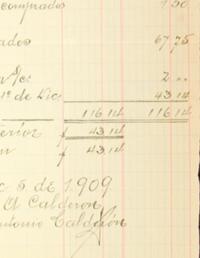 comprados 1 50
ados 67 75
a g/c: 2 "
1º de Dic. 43 14
116 14 116 14
erior $ 43 14
$ 43 14
c 5 de 1.909
A Calderon
ntonio Calderón